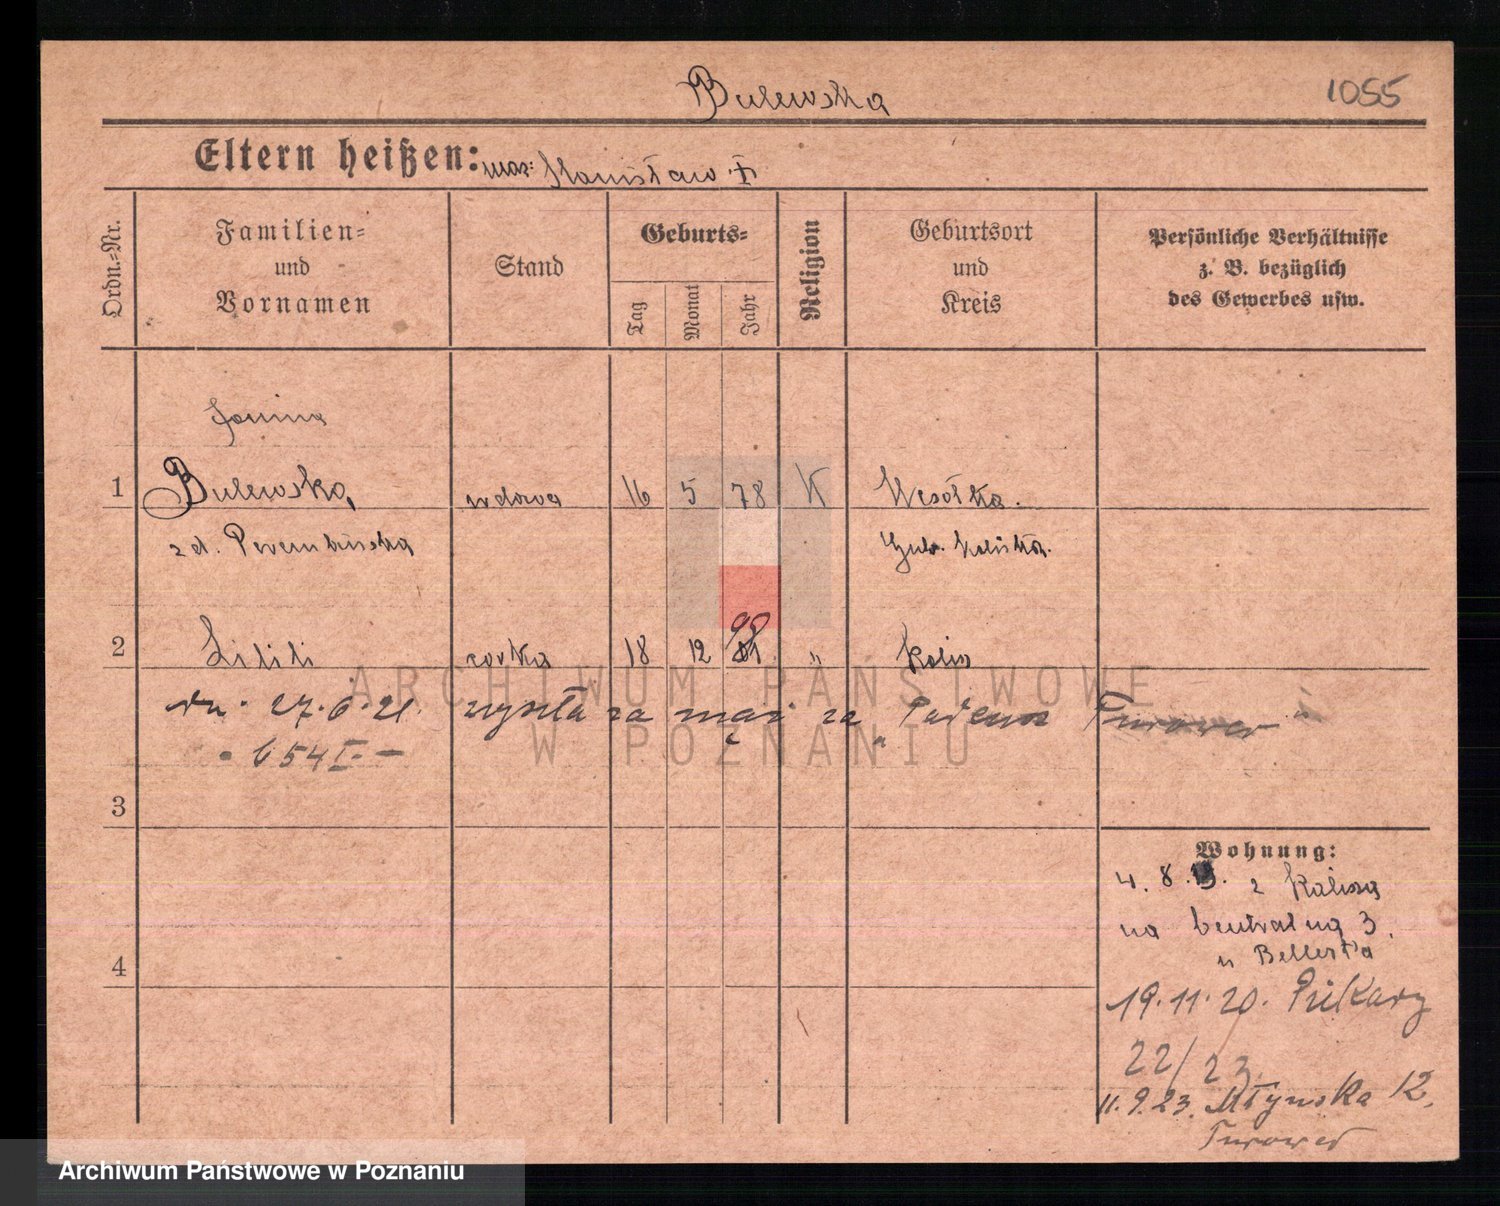 Bulewska
1055
Eltern heißen: mąż: Stanisław †
Ordn.-Nr.
Familien- und Vornamen
Stand
Geburts-
Tag
Monat
Jahr
Religion
Geburtsort und Kreis
Persönliche Verhältnisse z. B. bezüglich des Gewerbes usw.
Janina
1 Bulewska, wdowa 16 5 78 K Wesółka.
zd. Gub. Kaliska.
2 Lilili córka 18 12 98 " Kalisz
dn. 27.6.21. wyszła za mąż za Turower
654 I -
3
Wohnung:
4. 8. z Kalisza
na Centralną 3.
u Bellerta
4
19.11.20. Piekary
22/23.
11.9.23. Młyńska 12,
Turower
ARCHIWUM PAŃSTWOWE
W POZNANIU
Archiwum Państwowe w Poznaniu